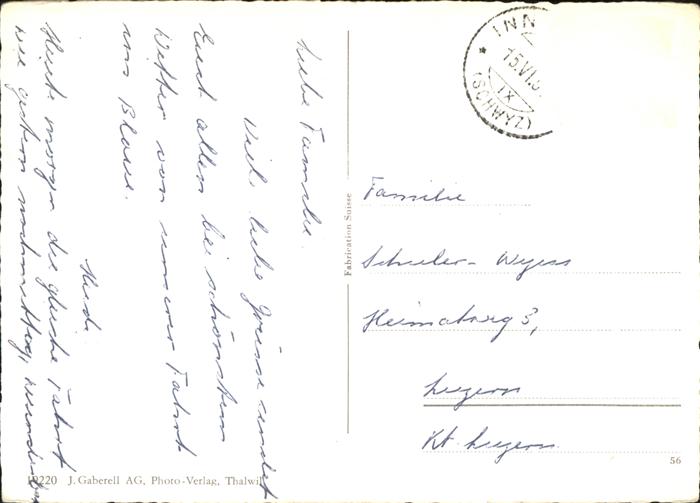 Liebe Familie.
Viele liebe Grüsse sendet
Euch allen bei schönstem
Wetter von unserer Fahrt
ins Blaue.
Hedi.
Heute morgen die gleiche Fahrt
wie gestern nachmittag,
INN
15.VI.5
IX
(SCHWYZ)
Familie
Schuler - Wyss
3,
Luzern
Kt. Luzern
Fabrication Suisse
J. Gaberell AG, Photo-Verlag, Thalwil
56